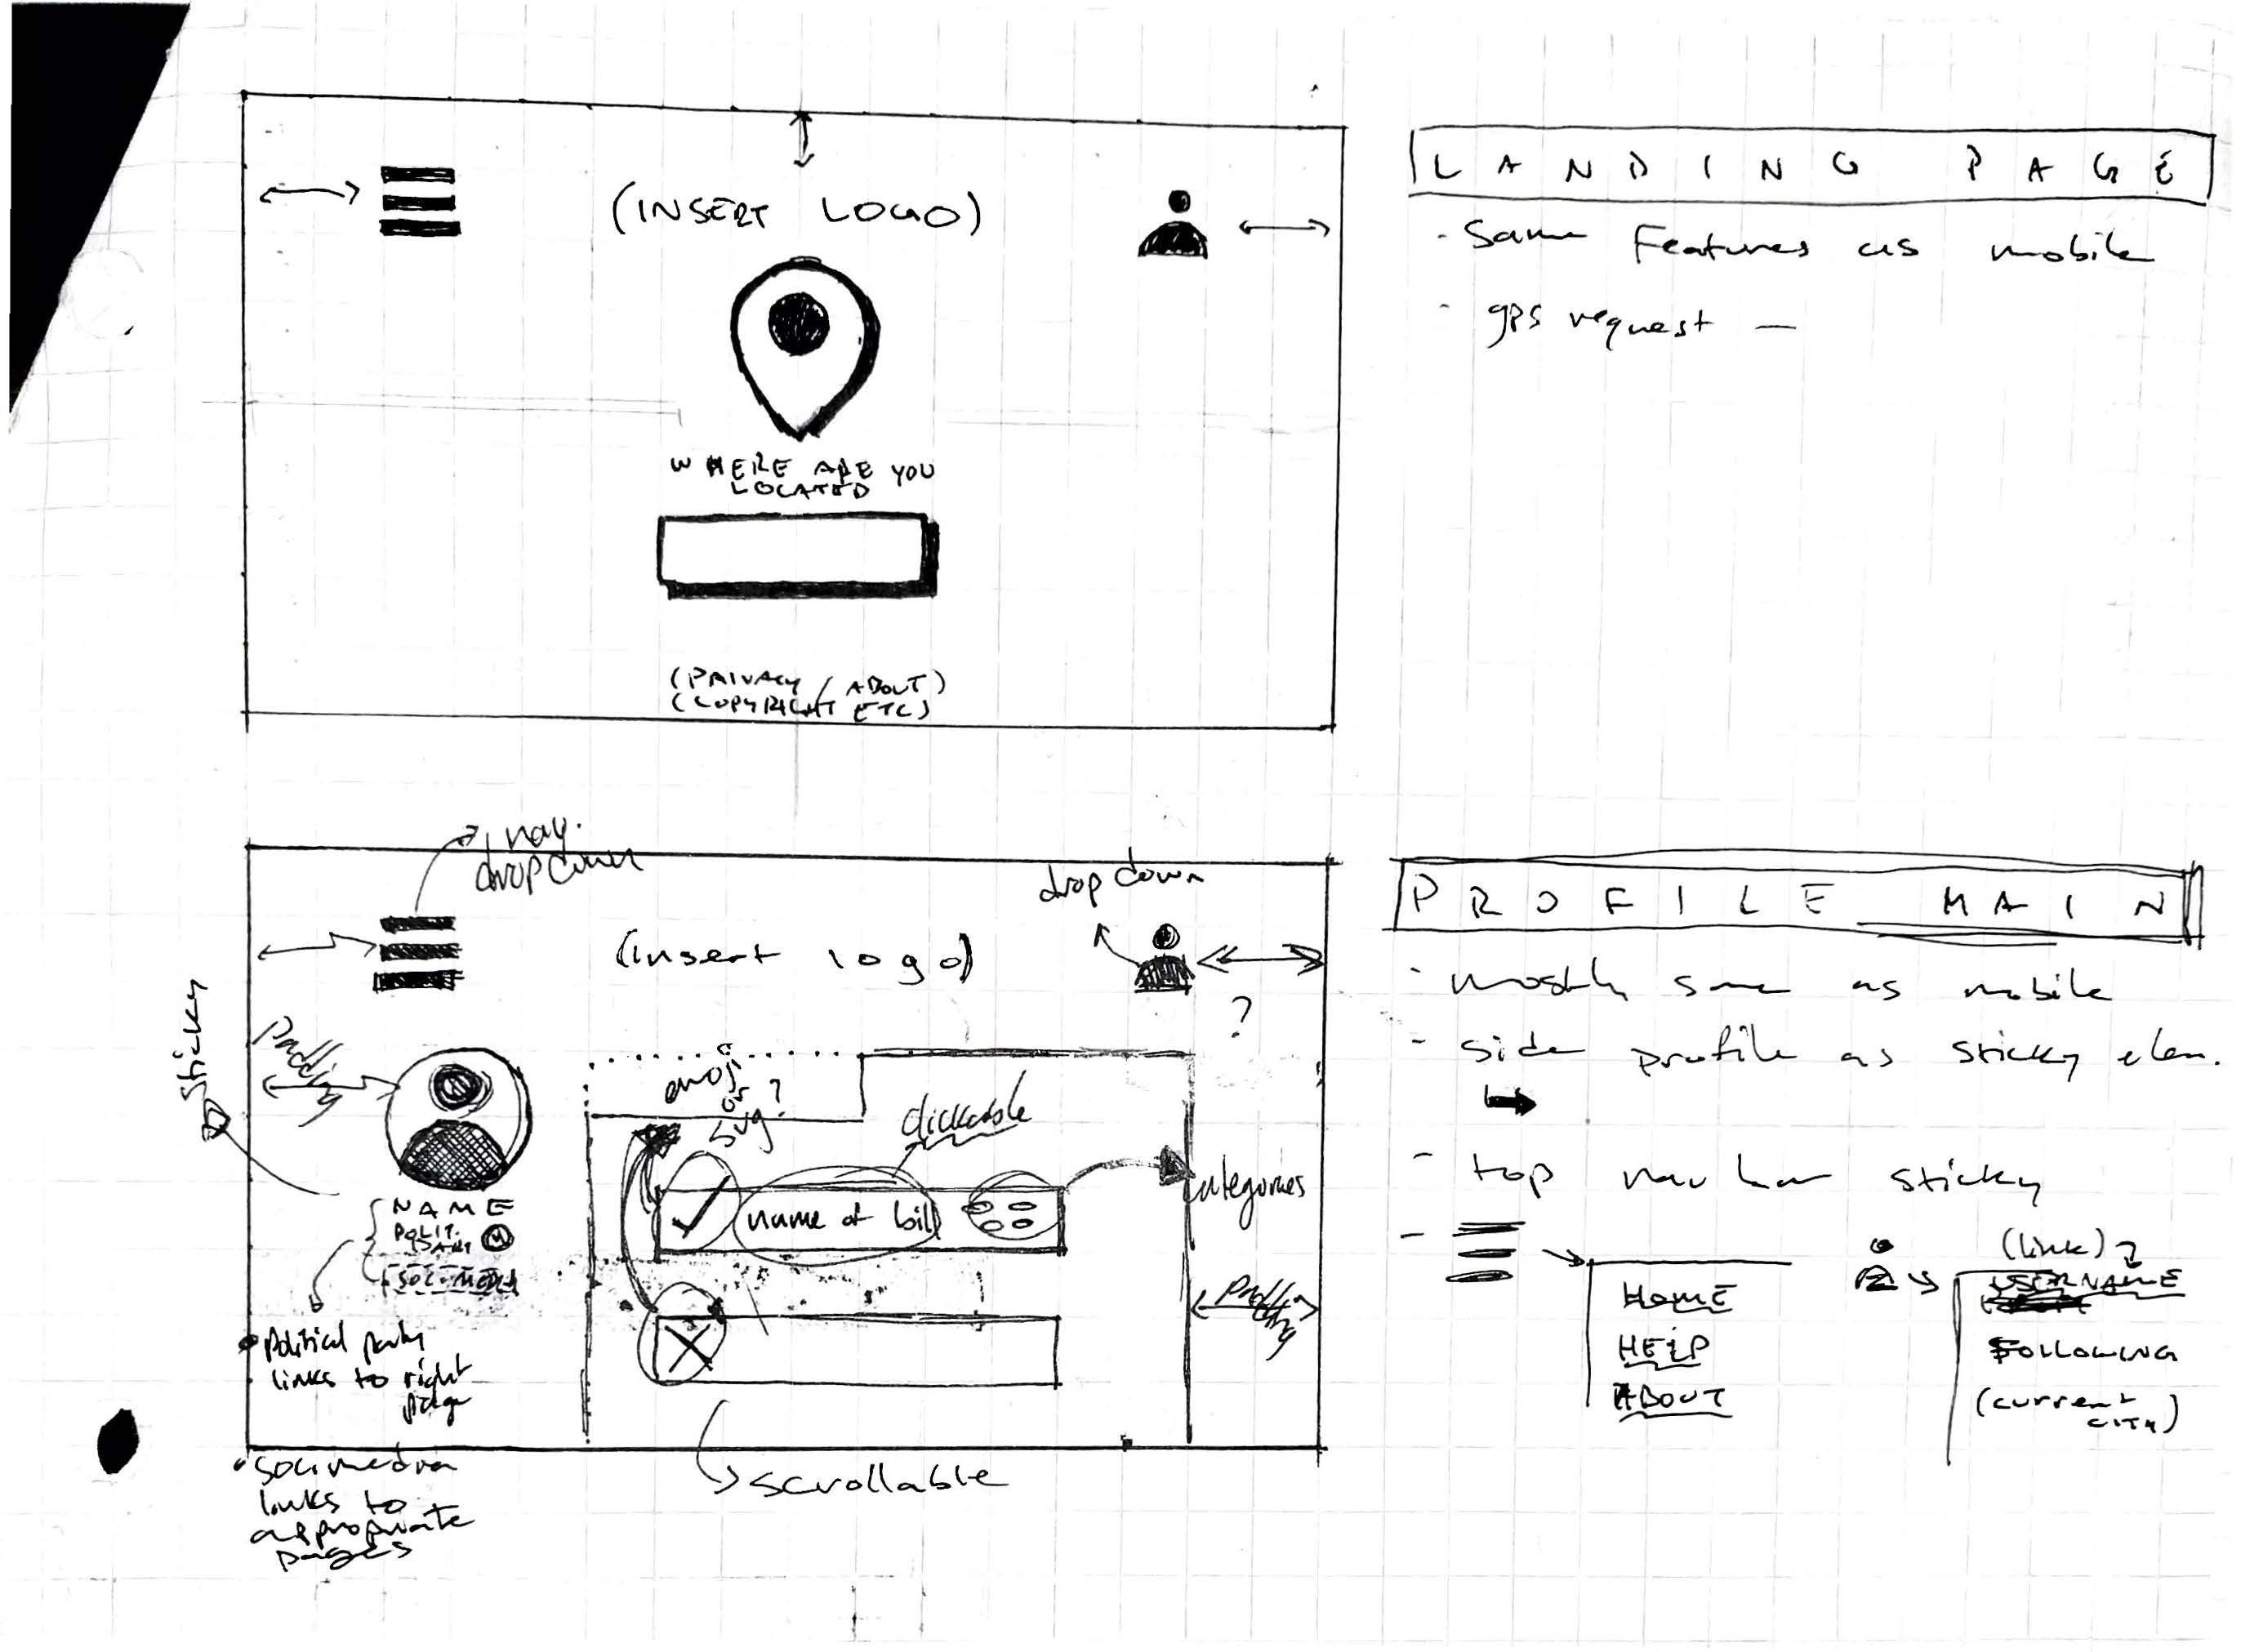 (INSERT LOGO)
WHERE ARE YOU
LOCATED
(PRIVACY / ABOUT)
(COPYRIGHT ETC)
LANDING PAGE
- Same Features as mobile
- gps request —
nav.
dropdown
drop down
(insert logo)
?
sticky
Padding
emoji
or
svg?
clickable
name of bill
categories
NAME
POLIT.
PART
SOC. MEDIA
Padding
• Political party
links to right
page
• soc. media
links to
appropriate
pages
scrollable
PROFILE MAIN
- mostly same as mobile
- side profile as sticky elem.
- top nav bar sticky
-
HOME
HELP
ABOUT
(link)
USERNAME
FOLLOWING
(current
city)